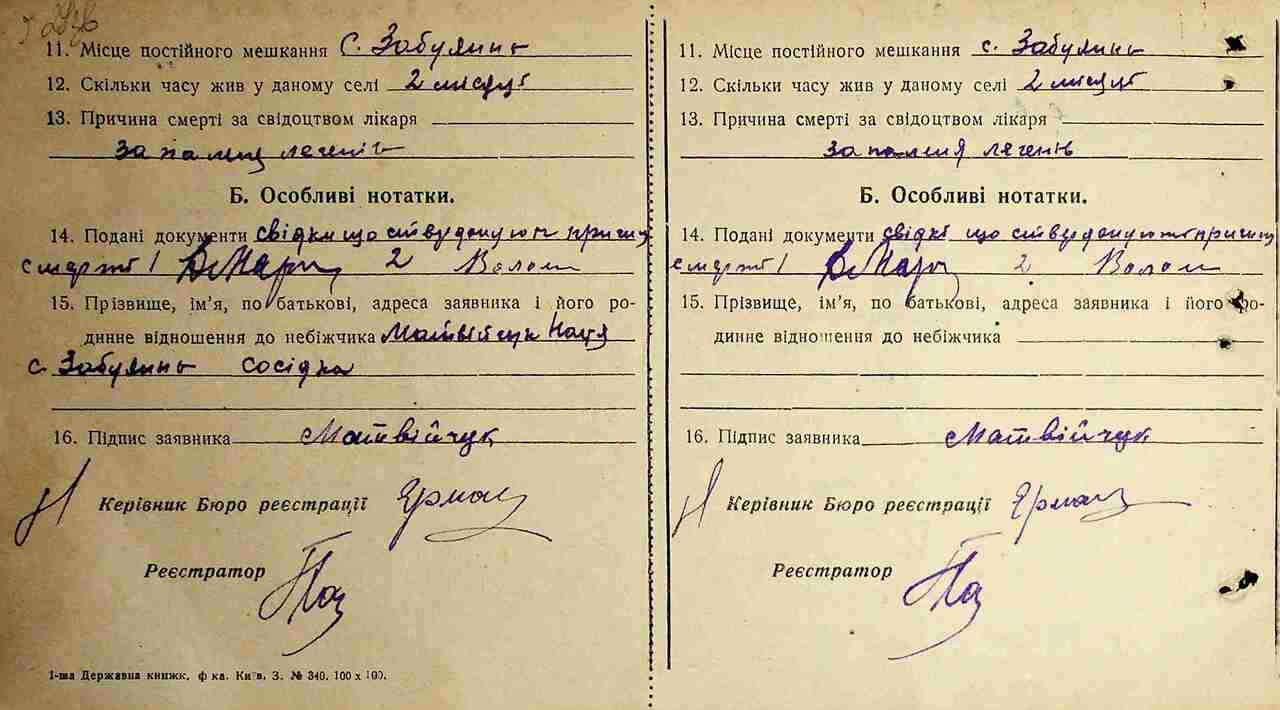 11. Місце постійного мешкання с. Забуяннь
12. Скільки часу жив у даному селі 2 місяці
13. Причина смерті за свідоцтвом лікаря
запаленя легенів
Б. Особливі нотатки.
14. Подані документи свідки що стверджують причину
смерті 1 2
15. Прізвище, ім'я, по батькові, адреса заявника і його ро-
динне відношення до небіжчика Матвійчук Настя
с. Забуяннь сосідка
16. Підпис заявника Матвійчук
Керівник Бюро реєстрації
Реєстратор
1-ша Державна книжк. ф-ка. Київ. З. № 340. 100 х 100.
11. Місце постійного мешкання с. Забуяннь
12. Скільки часу жив у даному селі 2 місяці
13. Причина смерті за свідоцтвом лікаря
запаленя легенів
Б. Особливі нотатки.
14. Подані документи свідкі що стверджують причину
смерті 1 2
15. Прізвище, ім'я, по батькові, адреса заявника і його ро-
динне відношення до небіжчика
16. Підпис заявника Матвійчук
Керівник Бюро реєстрації
Реєстратор